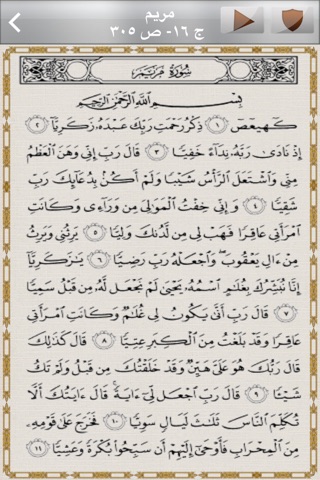 مريم
ج ١٦- ص ٣٠٥
سُورَةُ مَرْيَمَ
بِسْمِ ٱللَّهِ ٱلرَّحْمَٰنِ ٱلرَّحِيمِ
كٓهيعٓصٓ ١ ذِكْرُ رَحْمَتِ رَبِّكَ عَبْدَهُۥ زَكَرِيَّآ ٢
إِذْ نَادَىٰ رَبَّهُۥ نِدَآءً خَفِيًّا ٣ قَالَ رَبِّ إِنِّى وَهَنَ ٱلْعَظْمُ
مِنِّى وَٱشْتَعَلَ ٱلرَّأْسُ شَيْبًا وَلَمْ أَكُنۢ بِدُعَآئِكَ رَبِّ
شَقِيًّا ٤ وَإِنِّى خِفْتُ ٱلْمَوَٰلِىَ مِن وَرَآءِى وَكَانَتِ
ٱمْرَأَتِى عَاقِرًا فَهَبْ لِى مِن لَّدُنكَ وَلِيًّا ٥ يَرِثُنِى وَيَرِثُ
مِنْ ءَالِ يَعْقُوبَ وَٱجْعَلْهُ رَبِّ رَضِيًّا ٦ يَٰزَكَرِيَّآ
إِنَّا نُبَشِّرُكَ بِغُلَٰمٍ ٱسْمُهُۥ يَحْيَىٰ لَمْ نَجْعَل لَّهُۥ مِن قَبْلُ سَمِيًّا
٧ قَالَ رَبِّ أَنَّىٰ يَكُونُ لِى غُلَٰمٌ وَكَانَتِ ٱمْرَأَتِى
عَاقِرًا وَقَدْ بَلَغْتُ مِنَ ٱلْكِبَرِ عِتِيًّا ٨ قَالَ كَذَٰلِكَ
قَالَ رَبُّكَ هُوَ عَلَىَّ هَيِّنٌ وَقَدْ خَلَقْتُكَ مِن قَبْلُ وَلَمْ تَكُ
شَيْـًٔا ٩ قَالَ رَبِّ ٱجْعَل لِّىٓ ءَايَةً ۚ قَالَ ءَايَتُكَ أَلَّا
تُكَلِّمَ ٱلنَّاسَ ثَلَٰثَ لَيَالٍ سَوِيًّا ١٠ فَخَرَجَ عَلَىٰ قَوْمِهِۦ
مِنَ ٱلْمِحْرَابِ فَأَوْحَىٰٓ إِلَيْهِمْ أَن سَبِّحُوا۟ بُكْرَةً وَعَشِيًّا ١١